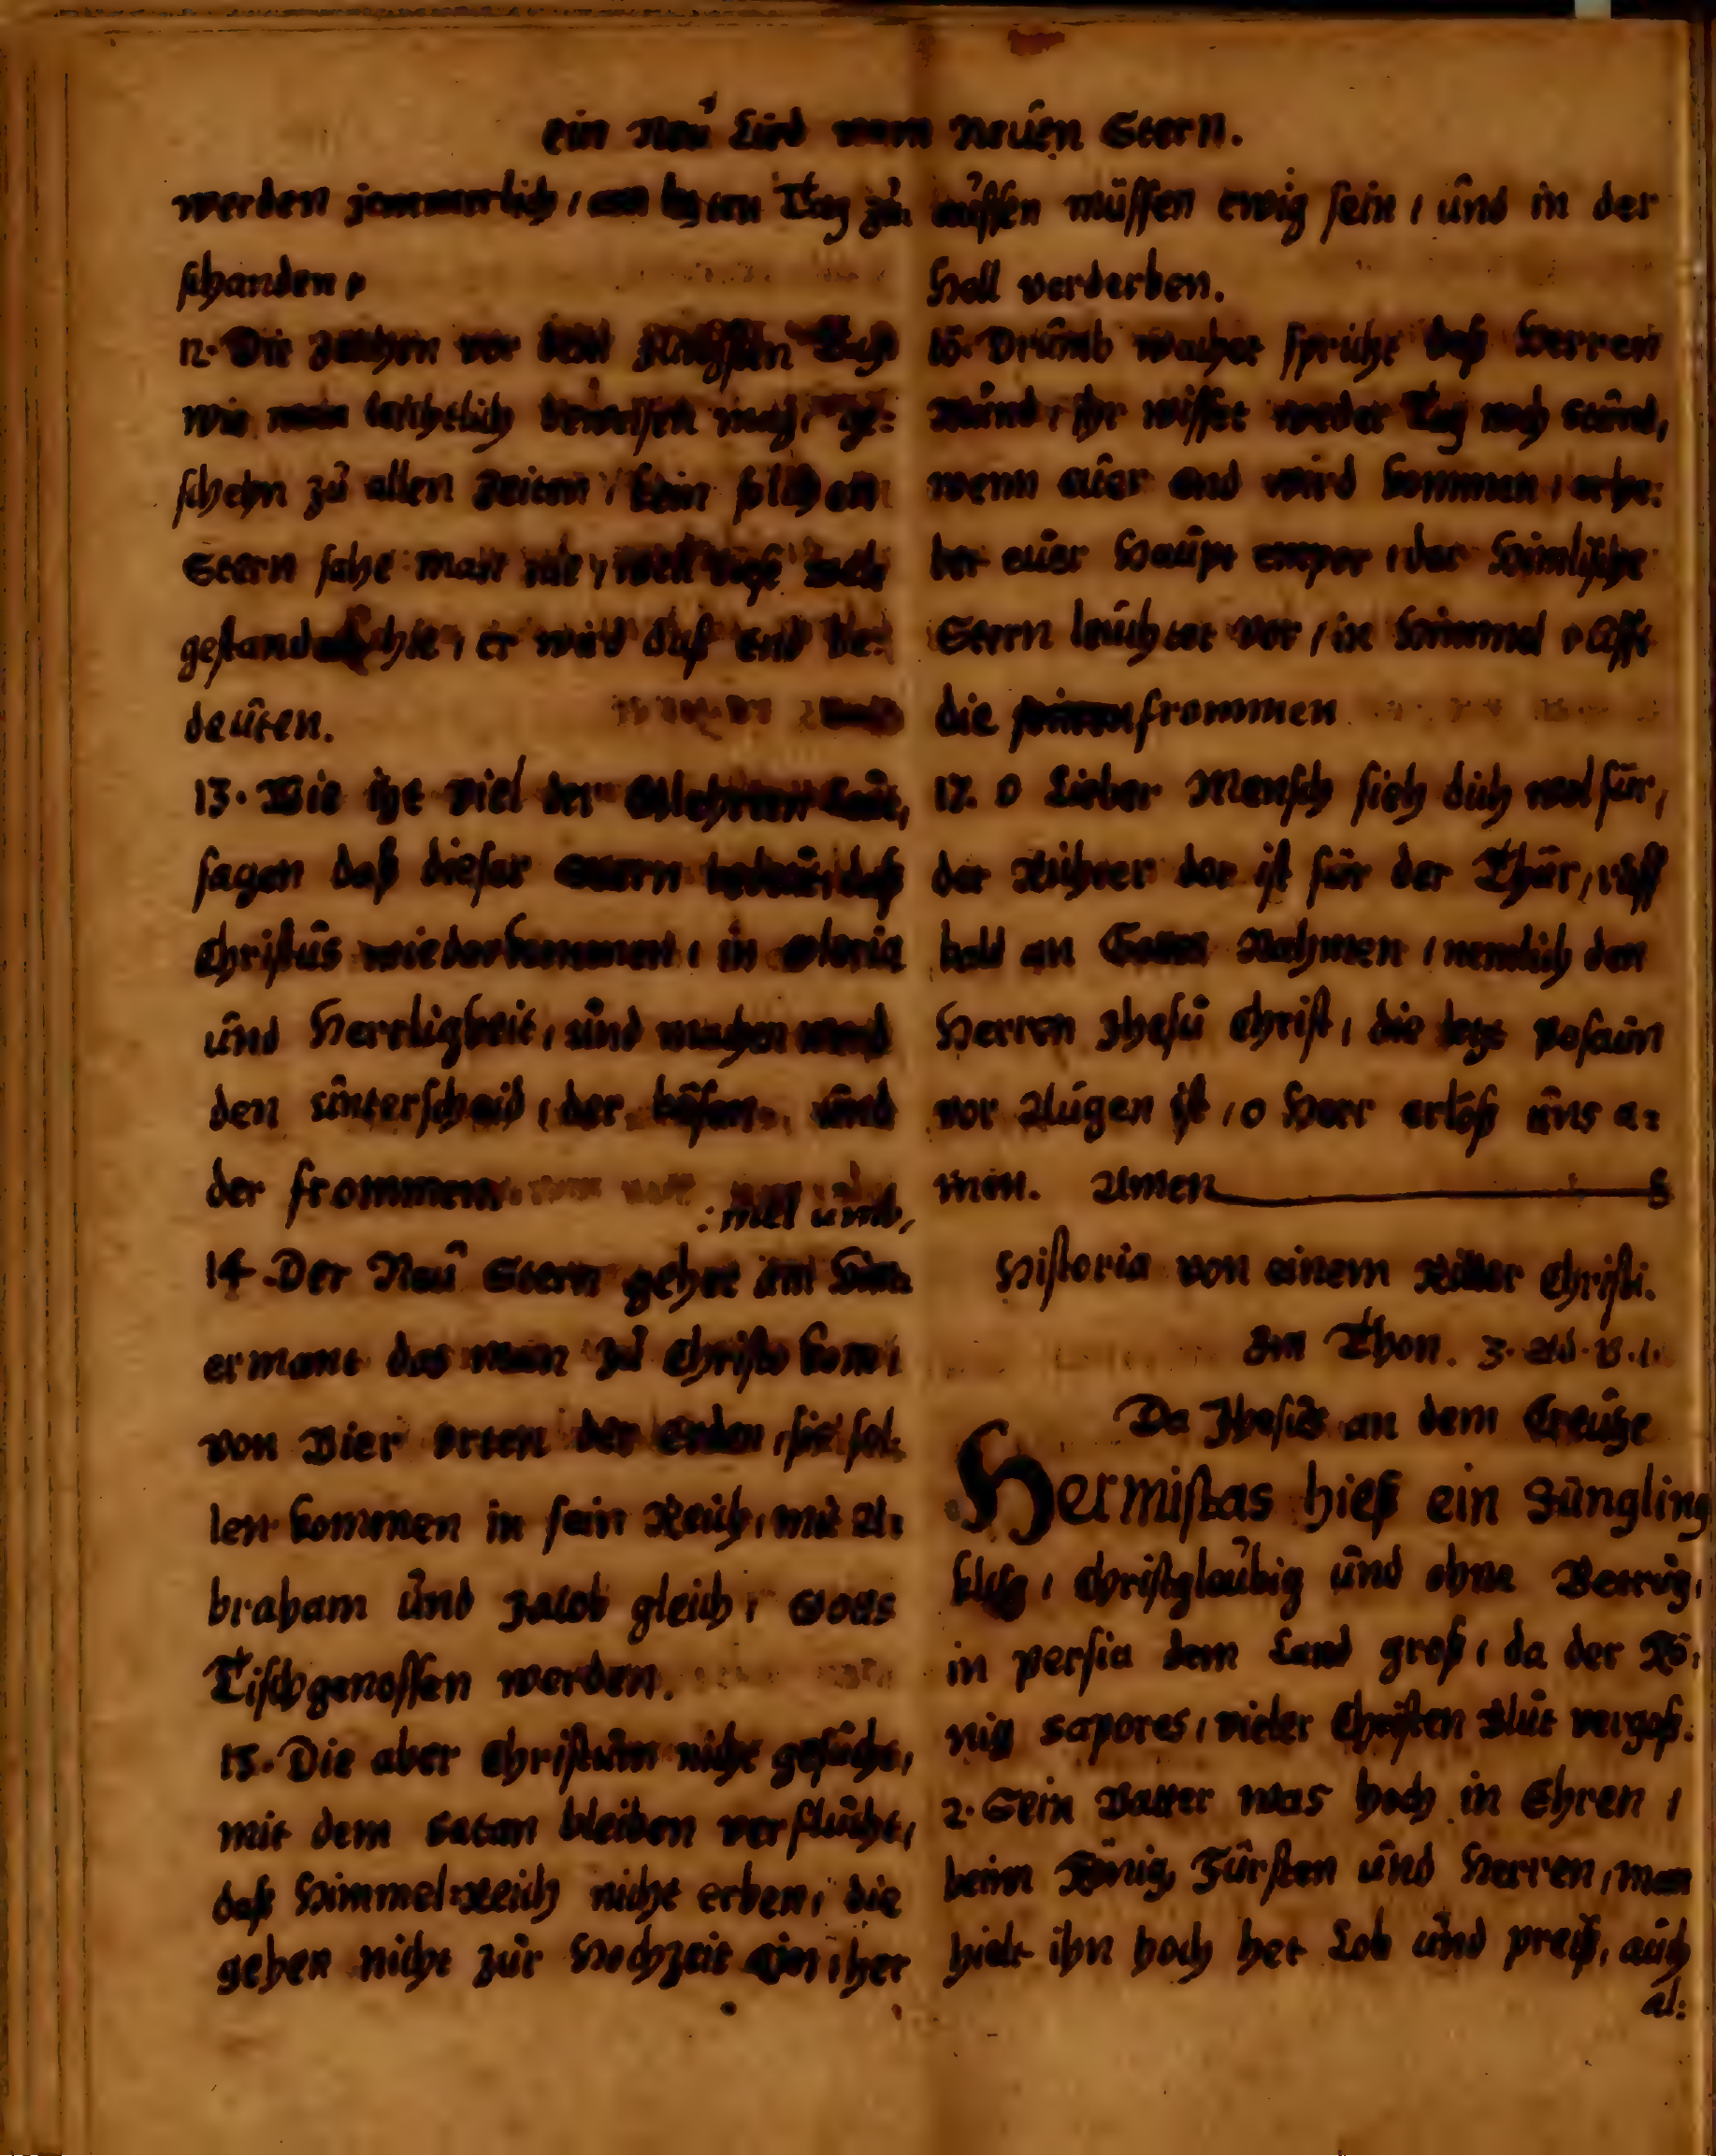 ein Neu Lied vom Neüen Stern.
werden jammerlich / am lezten Tag zu
schanden /
12. Die zeichen vor dem Jüngsten Tag
wie man leichtlich beweisen mag / ge:
schehn zu allen Zeiten / kein solchen
Stern sahe man nie / weil die welt
gestanden hie / er wird daß end be:
deüten.
13. Wie izt viel der Glehrten Leüt,
sagen daß dieser Stern bedeut, daß
Christus wiederkommen / in Gloria
und Herrligkeit, und machen werd
den unterscheid / der bösen und
der frommen.
: mel umb,
14. Der Neu Stern gehet am him:
ermant das man zu Christo kom /
von Vier orten der Erden / sie sol:
len kommen in sein Reich / mit A:
braham und Jacob gleich / Gotts
Tischgenossen werden.
15. Die aber Christum nicht gesucht,
mit dem Satan bleiben verflucht,
daß Himmel-Reich nicht erben / die
gehen nicht zur Hochzeit ein / her
aussen müssen ewig sein / und in der
Hell verderben.
16. Drumb wachet spricht deß Herren
Mund / ihr wisset weder Tag noch stund,
wenn euer end wird kommen / erhe:
bet euer Haupt empor / der Himlische
Stern leuchtet vor / in Himmel rufft
die frommen
17. O Lieber Mensch sieh dich wol für,
der Richter der ist für der Thür, ruff
bald an Gottes Nahmen / nemlich den
Herren Jhesu Christ, die lezt Posaun
vor Augen ist / o Herr erlöß uns a:
men. Amen
Historia von einem Ritter Christi.
Im Thon. 3.
Da Jhesus an dem Creuze
Hermistas hieß ein Jüngling
klug / Christglaubig und ohne Betrug,
in Persia dem Land groß / da der Kö:
nig Sapores / vieler Christen Blut vergoß.
2. Sein Vatter was hoch in Ehren /
beim König, Fürsten und Herren, man
hielt ihn hoch het Lob und preiß, auch
al: